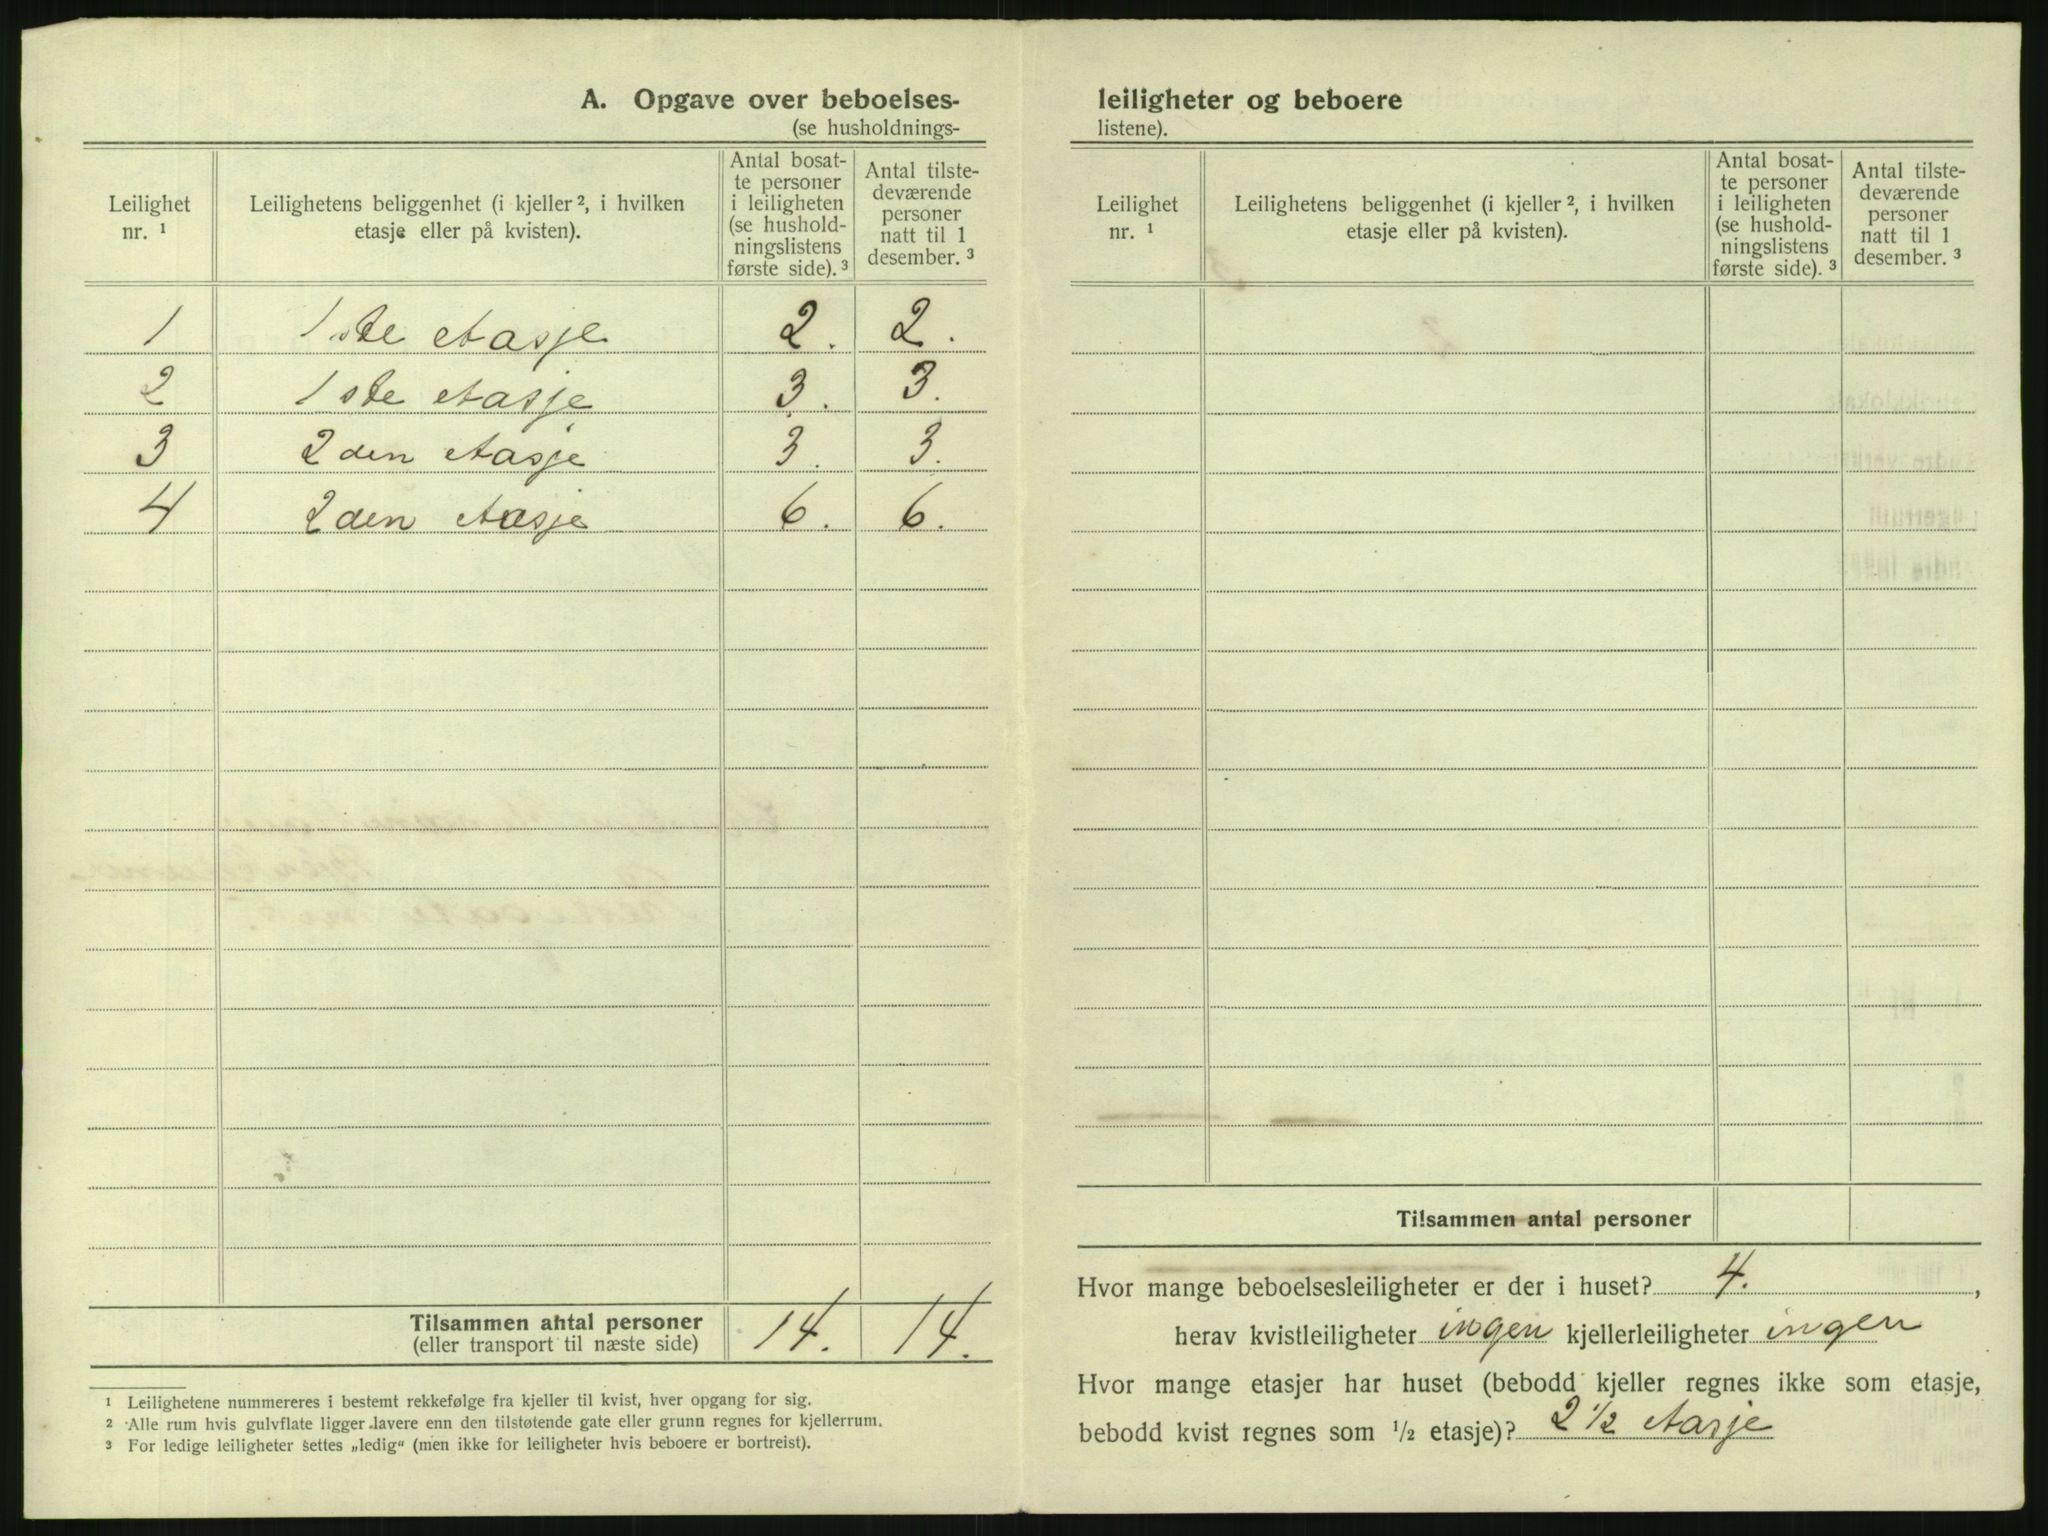 A. Opgave over beboelses-
(se husholdnings-
Leilighet nr. ¹
Leilighetens beliggenhet (i kjeller ², i hvilken etasje eller på kvisten).
Antal bosat-
te personer
i leiligheten
(se hushold-
ningslistens
første side). ³
Antal tilste-
deværende
personer
natt til 1
desember. ³
1 1ste etasje 2. 2.
2 1ste etasje 3. 3.
3 2den etasje 3. 3.
4 2den etasje 6. 6.
Tilsammen antal personer 14. 14.
(eller transport til næste side)
¹ Leilighetene nummereres i bestemt rekkefølge fra kjeller til kvist, hver opgang for sig.
² Alle rum hvis gulvflate ligger lavere enn den tilstøtende gate eller grunn regnes for kjellerrum.
³ For ledige leiligheter settes „ledig“ (men ikke for leiligheter hvis beboere er bortreist).
leiligheter og beboere
listene).
Leilighet nr. ¹
Leilighetens beliggenhet (i kjeller ², i hvilken etasje eller på kvisten).
Antal bosat-
te personer
i leiligheten
(se hushold-
ningslistens
første side). ³
Antal tilste-
deværende
personer
natt til 1
desember. ³
Tilsammen antal personer
Hvor mange beboelsesleiligheter er der i huset? 4. ,
herav kvistleiligheter ingen kjellerleiligheter ingen
Hvor mange etasjer har huset (bebodd kjeller regnes ikke som etasje,
bebodd kvist regnes som ½ etasje)? 2 ½ etasje